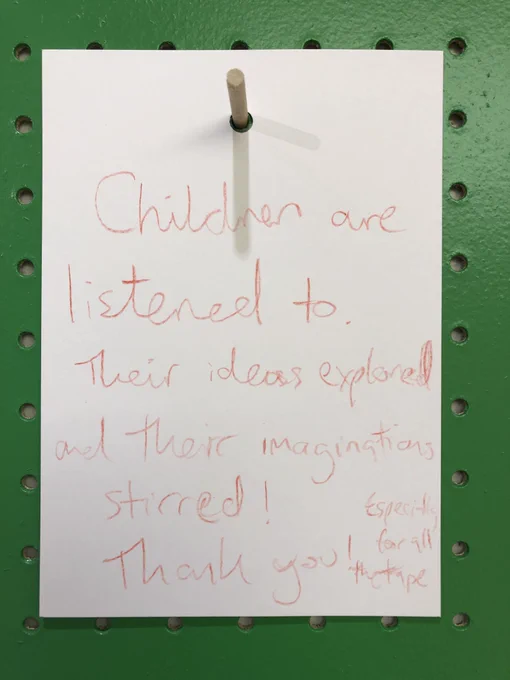 Children are
listened to.
Their ideas explored
and their imaginations
stirred!
Thank you!
Especially
for all
the tape